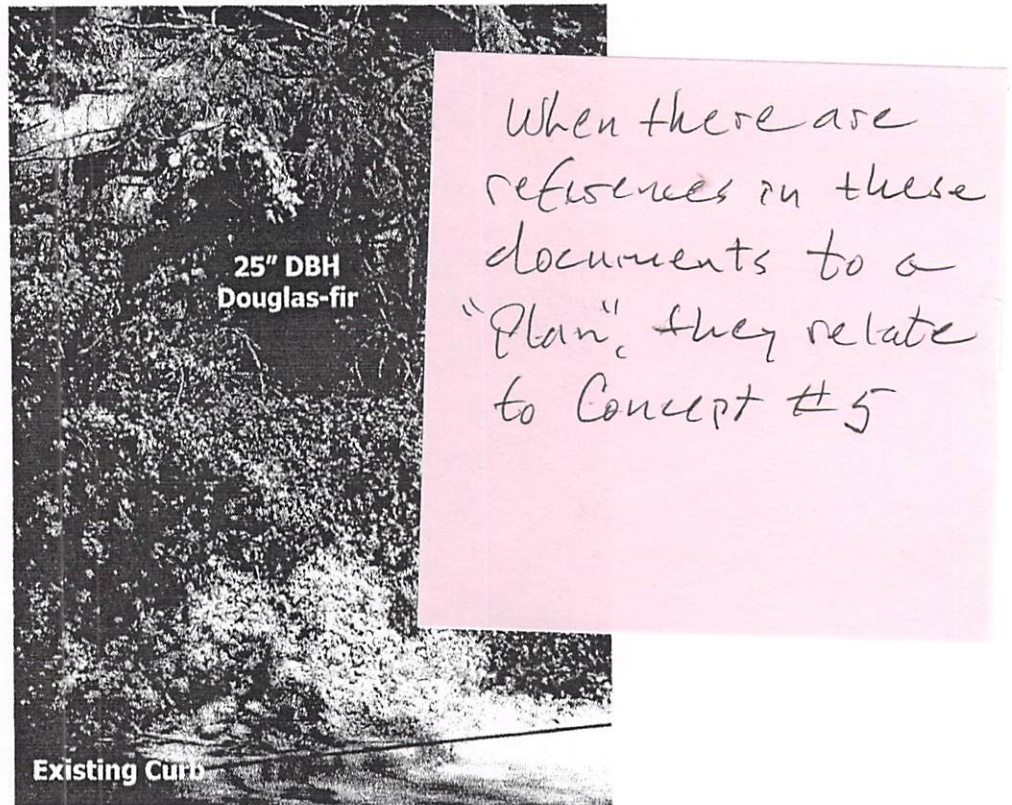 25" DBH
Douglas-fir
Existing Curb
When there are
references in these
documents to a
"Plan", they relate
to Concept #5